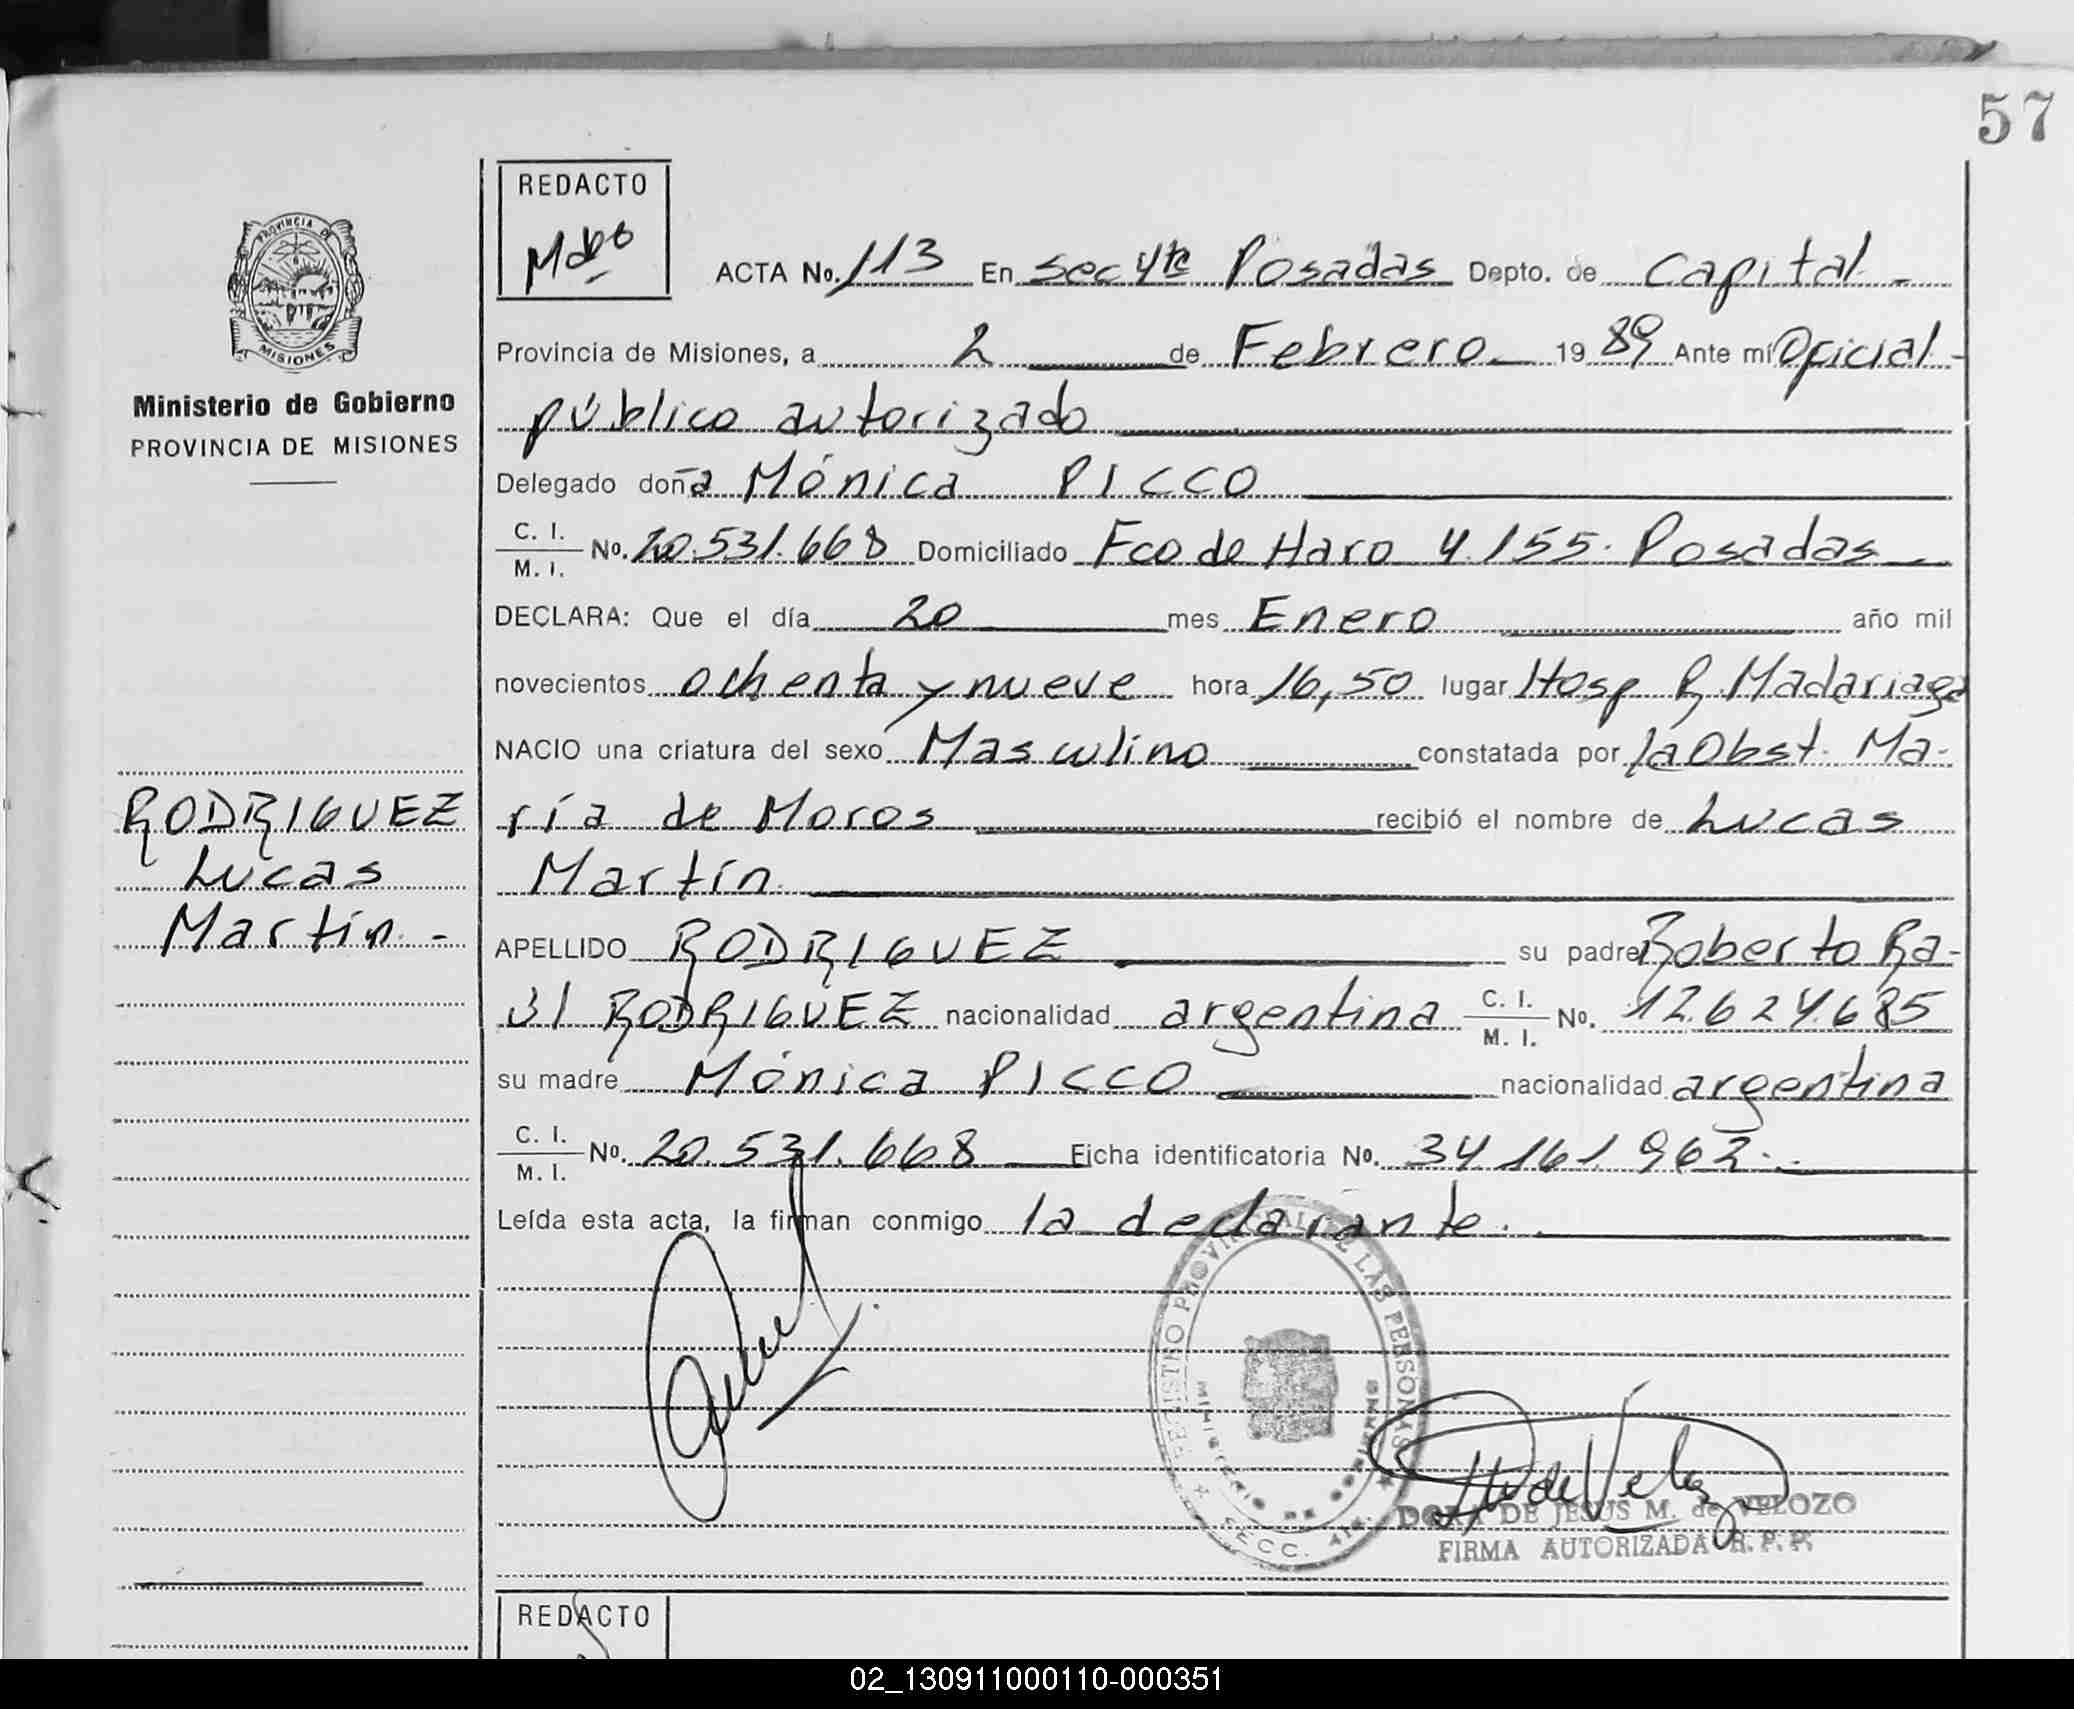 57
REDACTO
PROVINCIA DE
MISIONES
ACTA No. 113 En sec 4ta Posadas Depto. de Capital -
Provincia de Misiones, a 2 de Febrero 19 89 Ante mí Oficial
Ministerio de Gobierno
público autorizado
PROVINCIA DE MISIONES
Delegado doña Mónica PICCO
C. I.
M. I. No. 20.531.668 Domiciliado Fco de Haro 4.155. Posadas
DECLARA: Que el día 20 mes Enero año mil
novecientos ochenta y nueve hora 16,50 lugar Hosp R. Madariaga
NACIO una criatura del sexo Masculino constatada por la Obst. Ma-
RODRIGUEZ
ría de Moros recibió el nombre de Lucas
Lucas
Martín
Martín -
APELLIDO RODRIGUEZ su padre Roberto Ra-
úl RODRIGUEZ nacionalidad argentina C. I. M. I. No. 12.624.685
su madre Mónica PICCO nacionalidad argentina
C. I.
M. I. No. 20.531.668 Ficha identificatoria No. 34.161.962.-
Leída esta acta, la firman conmigo la declarante.
REGISTRO PROVINCIAL DE LAS PERSONAS
MINISTERIO DE GOBIERNO
SECC. 4ta.
DORA DE JESUS M. de VELOZO
FIRMA AUTORIZADA R. P. P.
REDACTO
02_130911000110-000351